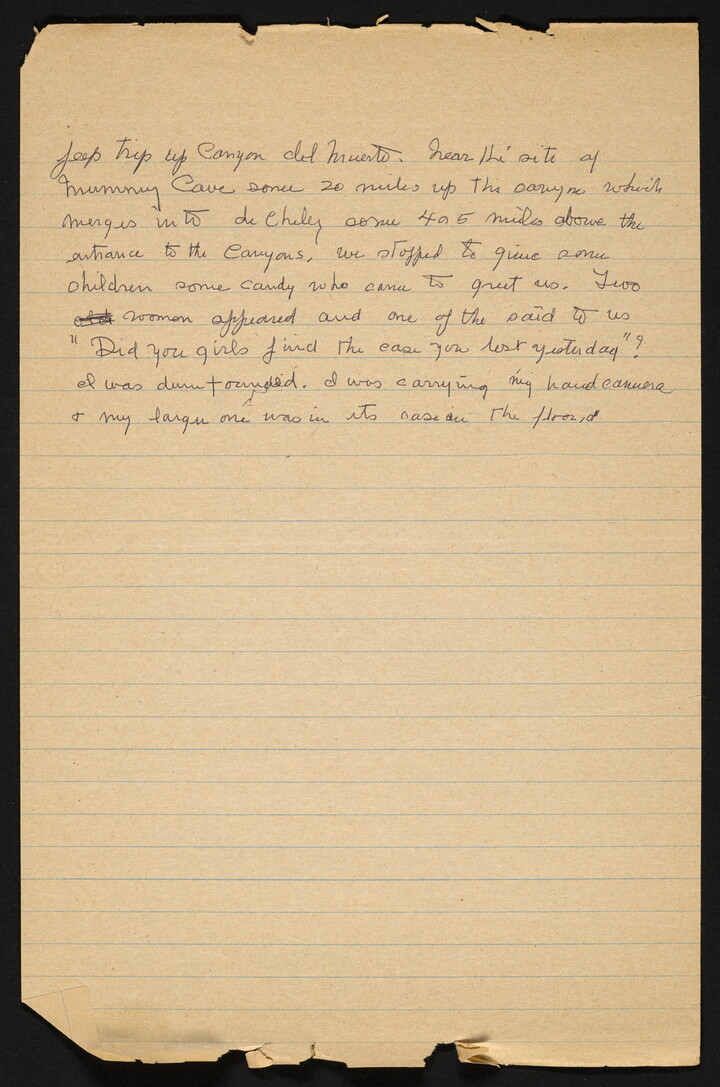 Jeep trip up Canyon del Muerto. Near the site of
Mummy Cave some 20 miles up this canyon which
merges into de Chelly some 4 or 5 miles above the
entrance to the Canyons, we stopped to give some
children some candy who came to greet us. Two
old women appeared and one of the said to us
"Did you girls find the case you lost yesterday"?
I was dumfounded. I was carrying my hand camera
& my large one was in its case in the floor,